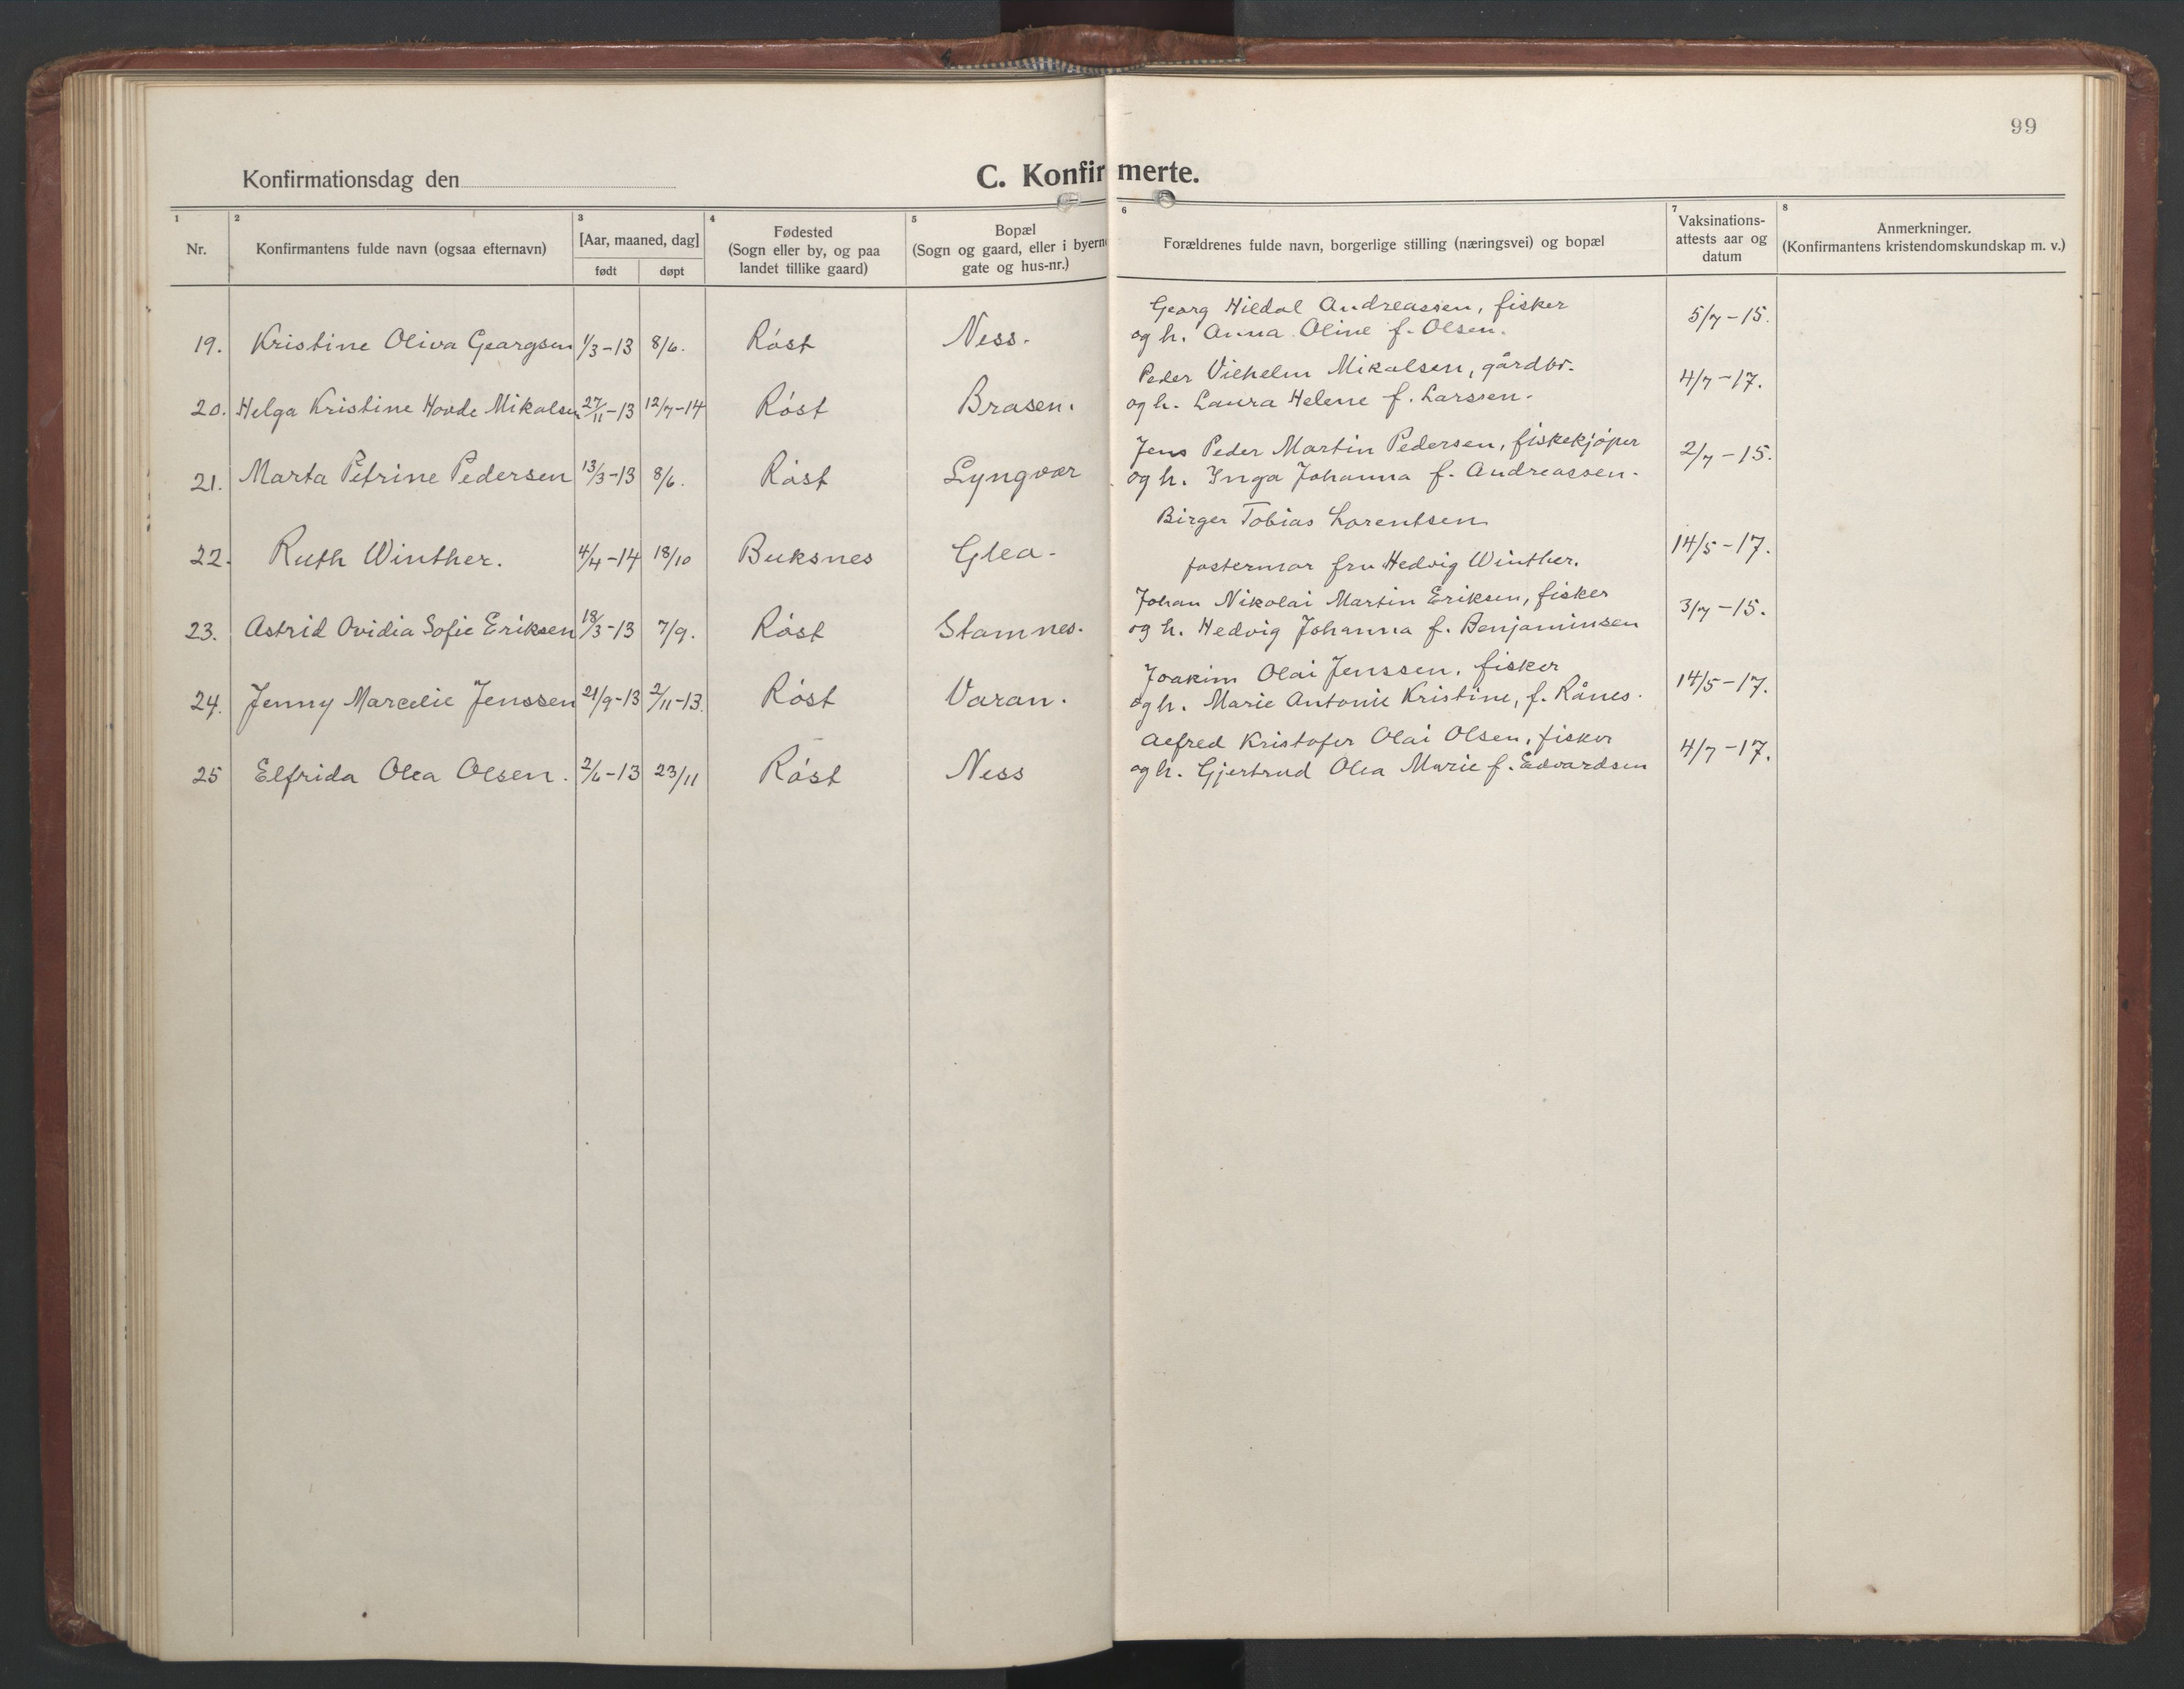 99
Konfirmationsdag den
C. Konfirmerte.
1 2 3 4 5 6 7 8
Nr.
Konfirmantens fulde navn (ogsaa efternavn)
[Aar, maaned, dag]
født døpt
Fødested
(Sogn eller by, og paa
landet tillike gaard)
Bopæl
(Sogn og gaard, eller i byerne
gate og hus-nr.)
Forældrenes fulde navn, borgerlige stilling (næringsvei) og bopæl
Vaksinations-
attests aar og
datum
Anmerkninger.
(Konfirmantens kristendomskundskap m. v.)
Georg Hildal Andreassen, fisker
19. Kristine Oliva Georgsen 1/3-13 8/6. Røst Ness. og h. Anna Oline f. Olsen. 5/7-15.
Peder Vilhelm Mikalsen, gårdbr.
20. Helga Kristine Hovde Mikalsen 27/11-13 12/7-14 Røst Brasen. og h. Laura Helene f. Larssen. 4/7-17.
Jens Peder Martin Pedersen, fiskekjøper
21. Marta Petrine Pedersen 13/3-13 8/6. Røst Lyngvær og h. Inga Johanna f. Andreassen. 2/7-15.
Birger Tobias Lorentsen
22. Ruth Winther. 4/4-14 18/10 Buksnes Glea. fostermor fru Hedvig Winther. 14/5-17.
Johan Nikolai Martin Eriksen, fisker
23. Astrid Ovidia Sofie Eriksen 18/3-13 7/9. Røst Stamnes. og h. Hedvig Johanna f. Benjaminsen 3/7-15.
Joakim Olai Jenssen, fisker
24. Jenny Marcelie Jenssen 21/9-13 2/11-13. Røst Varan. og h. Marie Antonie Kristine, f. Rånes. 14/5-17.
Alfred Kristofer Olai Olsen, fisker
25 Elfrida Olea Olsen. 2/6-13 23/11 Røst Ness og h. Gjertrud Olea Marie f. Edvardsen 4/7-17.